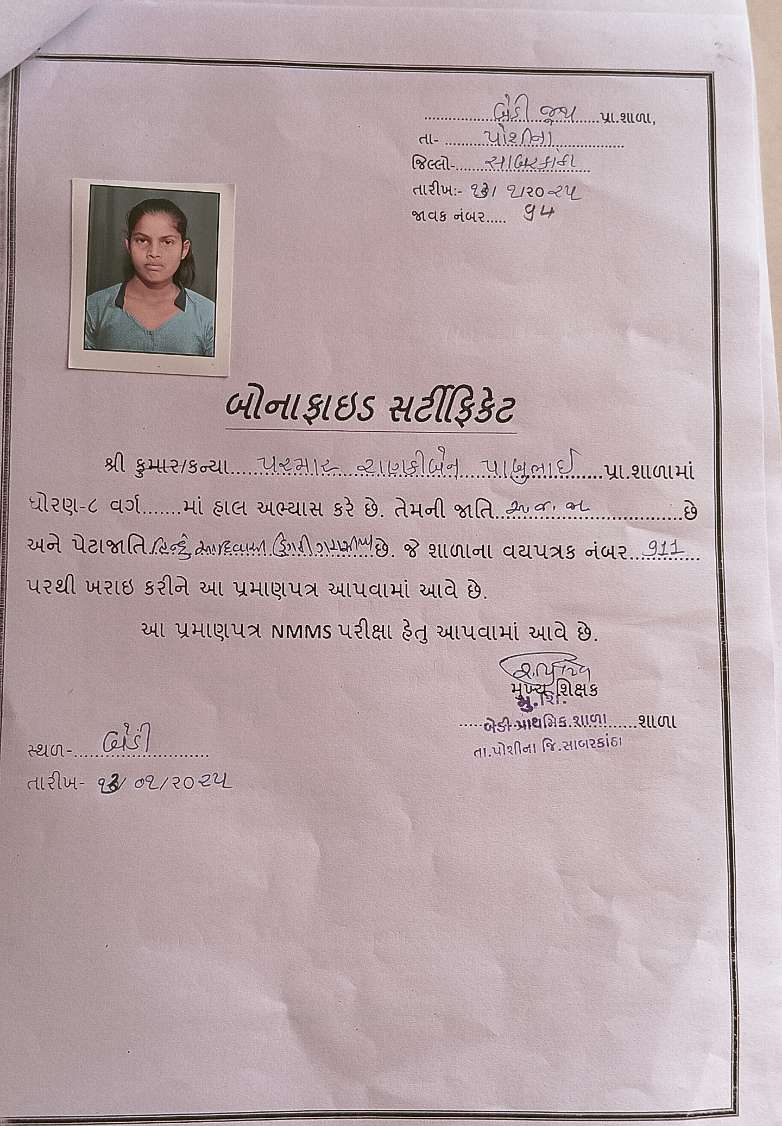 બેડી જૂથ પ્રા.શાળા,
તા- પોશીના
જિલ્લો- સાબરકાંઠા
તારીખ:- ૧૩/ ૧/૨૦૨૫
જાવક નંબર..... ૧૫
બોનાફાઇડ સર્ટીફિકેટ
શ્રી કુમાર/કન્યા.... પરમાર રાણકીબેન પાબુભાઈ ....પ્રા.શાળામાં
ધોરણ-૮ વર્ગ.......માં હાલ અભ્યાસ કરે છે. તેમની જાતિ.. અ.જ.જા ....છે
અને પેટાજાતિ હિન્દુ આદિવાસી ડુંગરી ગરાસીયા છે. જે શાળાના વયપત્રક નંબર.. 911
પરથી ખરાઇ કરીને આ પ્રમાણપત્ર આપવામાં આવે છે.
આ પ્રમાણપત્ર NMMS પરીક્ષા હેતુ આપવામાં આવે છે.
મુખ્ય શિક્ષક
મુ.શિ.
બેડી પ્રાથમિક શાળા ......શાળા
તા.પોશીના જિ.સાબરકાંઠા
સ્થળ- બેડી
તારીખ- ૧૩/ ૦૧/૨૦૨૫